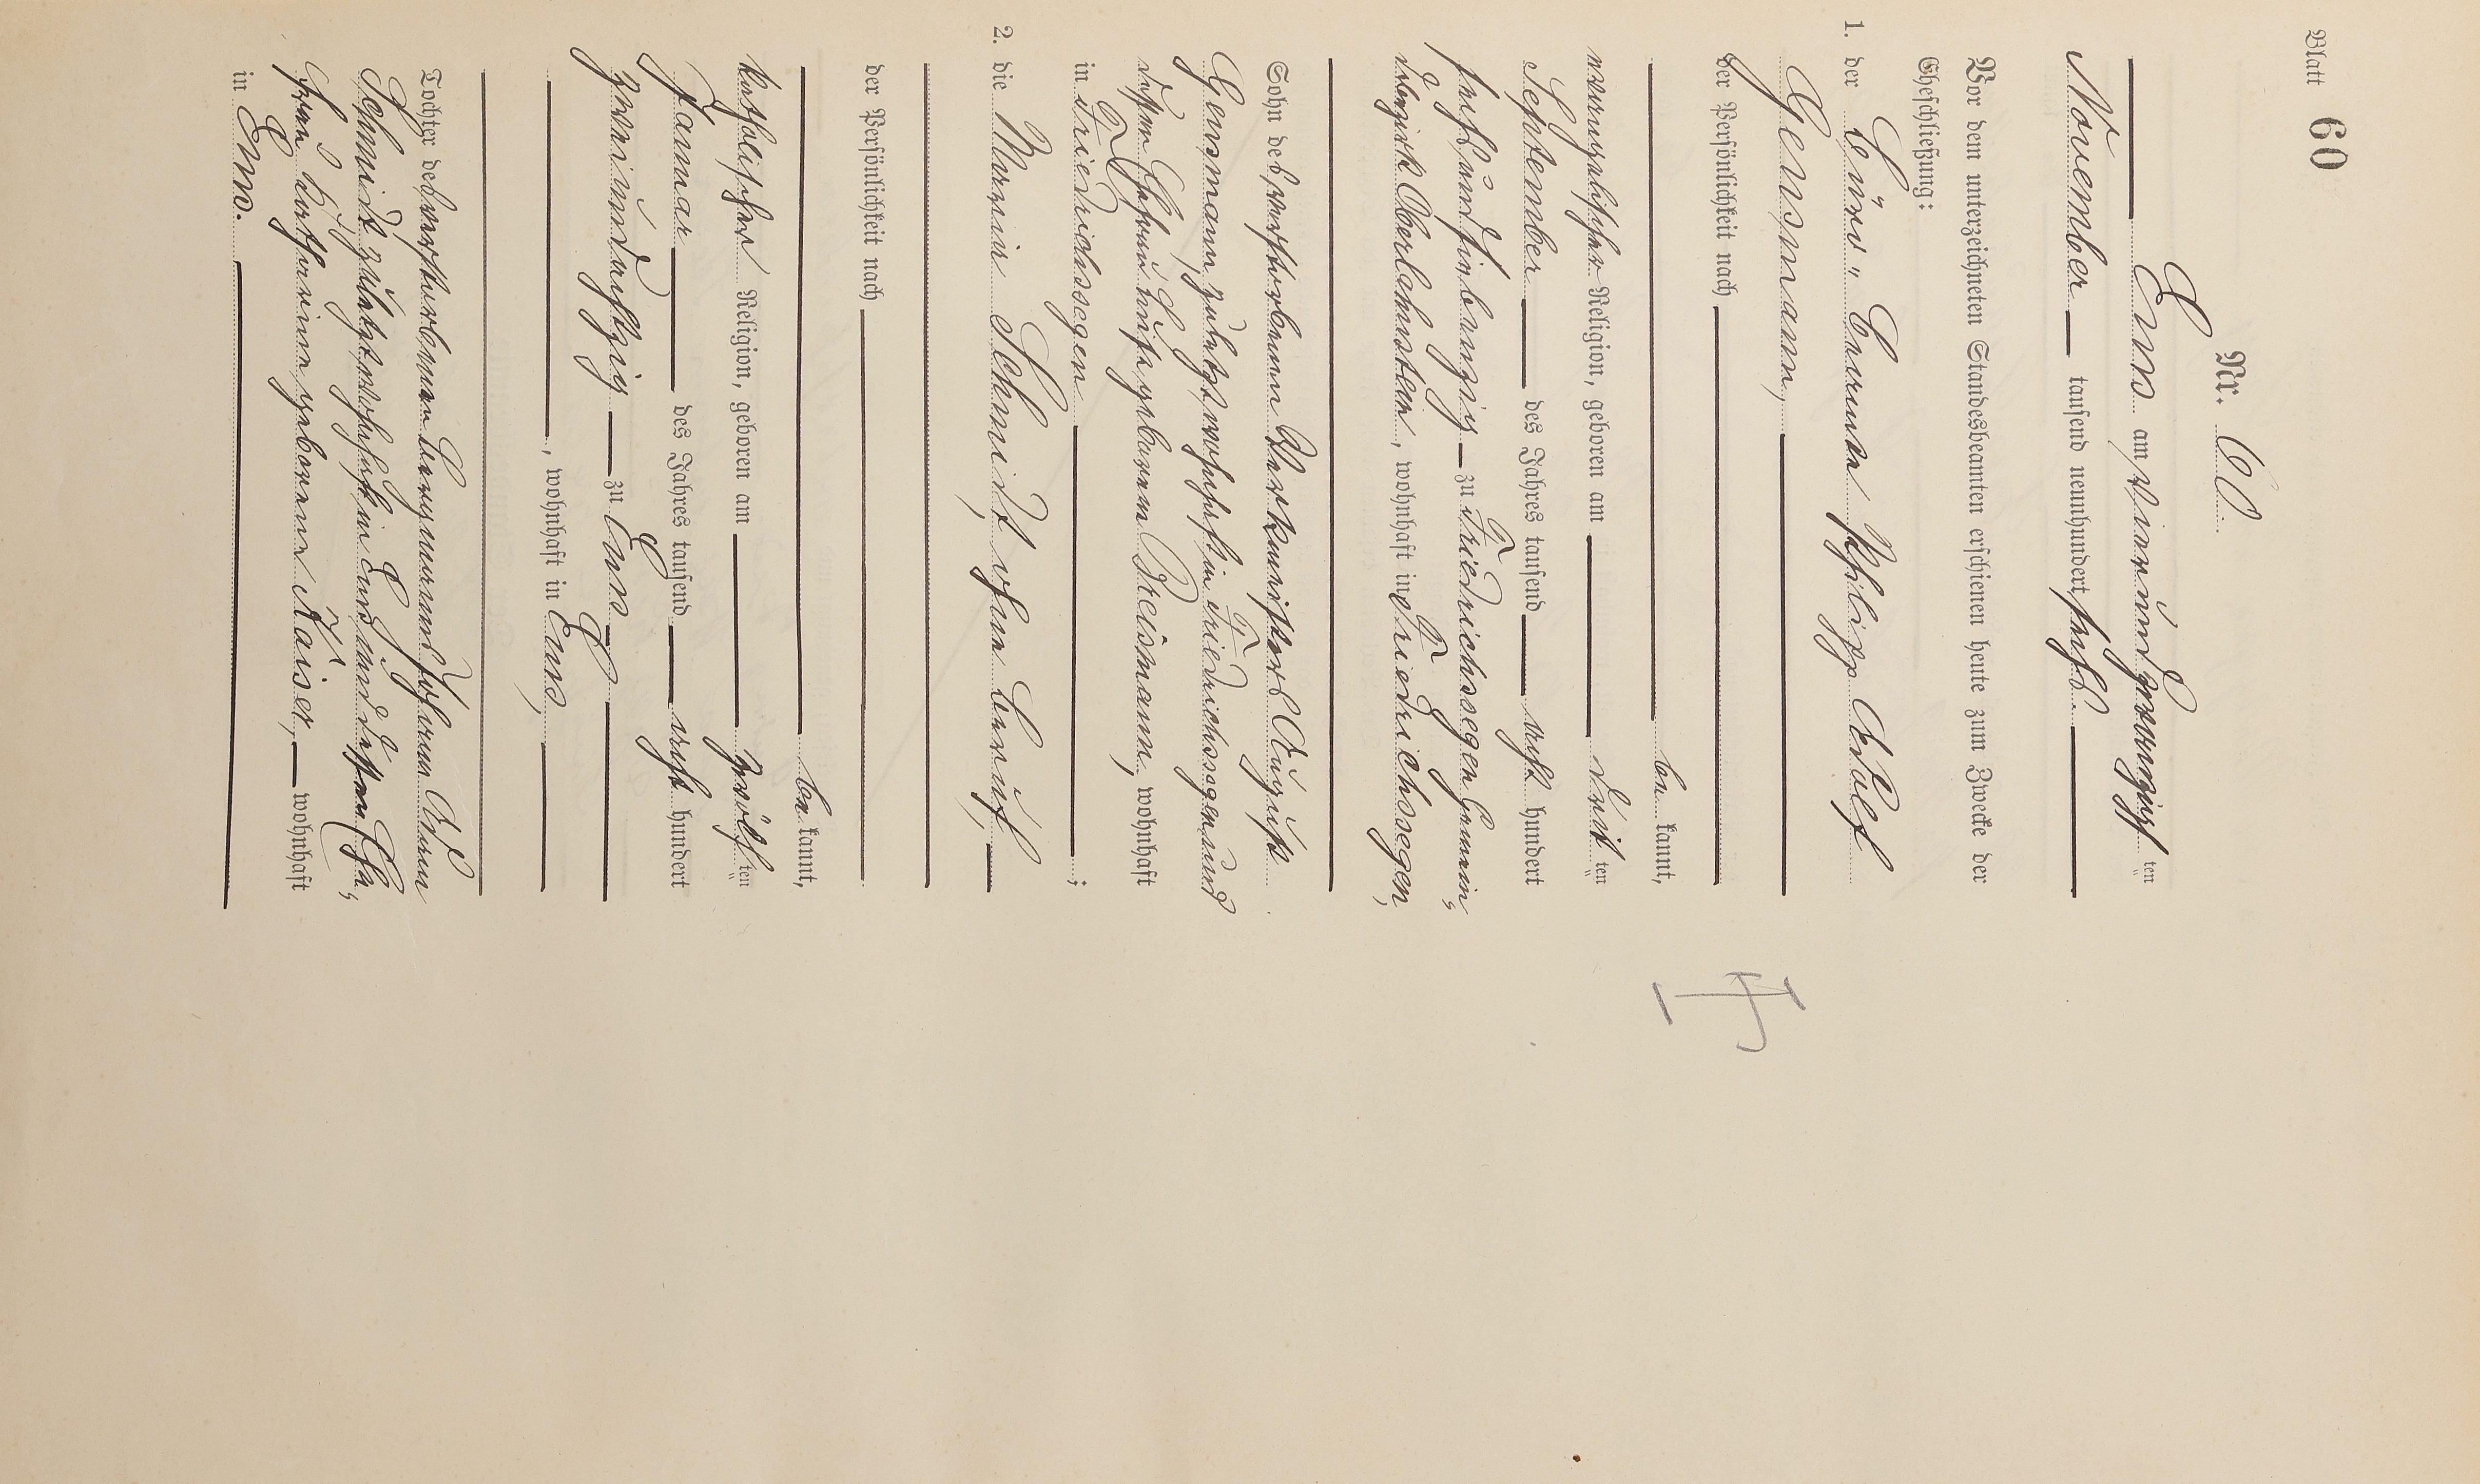 Blatt 60
Nr. 60.
Ems am vierundzwanzigsten
November tausend neunhundert sechs.
Vor dem unterzeichneten Standesbeamten erschienen heute zum Zwecke der
Eheschließung:
1. der Büro„ Beamte Philipp Adolf
Gensmann,
der Persönlichkeit nach
be kannt,
evangelischer Religion, geboren am dritten
September des Jahres tausend acht hundert
sechsundsiebenzig zu Friedrichssegen Gemein„
debezirk Oberlahnstein, wohnhaft in Friedrichssegen,
Sohn des verstorbenen Werkmeisters August
Gensmann, zuletzt wohnhaft in Friedrichssegen, und
dessen Ehefrau geborenen Breismann, wohnhaft
in Friedrichssegen;
2. die Maria Schmidt, ohne Beruf,
der Persönlichkeit nach
be kannt,
katholischer Religion, geboren am zwölften
Januar des Jahres tausend acht hundert
zweiundachtzig zu Ems
, wohnhaft in Ems,
Tochter des verstorbenen Bergmanns Johann Adam
Schmidt zuletzt wohnhaft in Ems, und dessen Ehe„
frau Katharina geborene Kaiser, wohnhaft
in Ems.